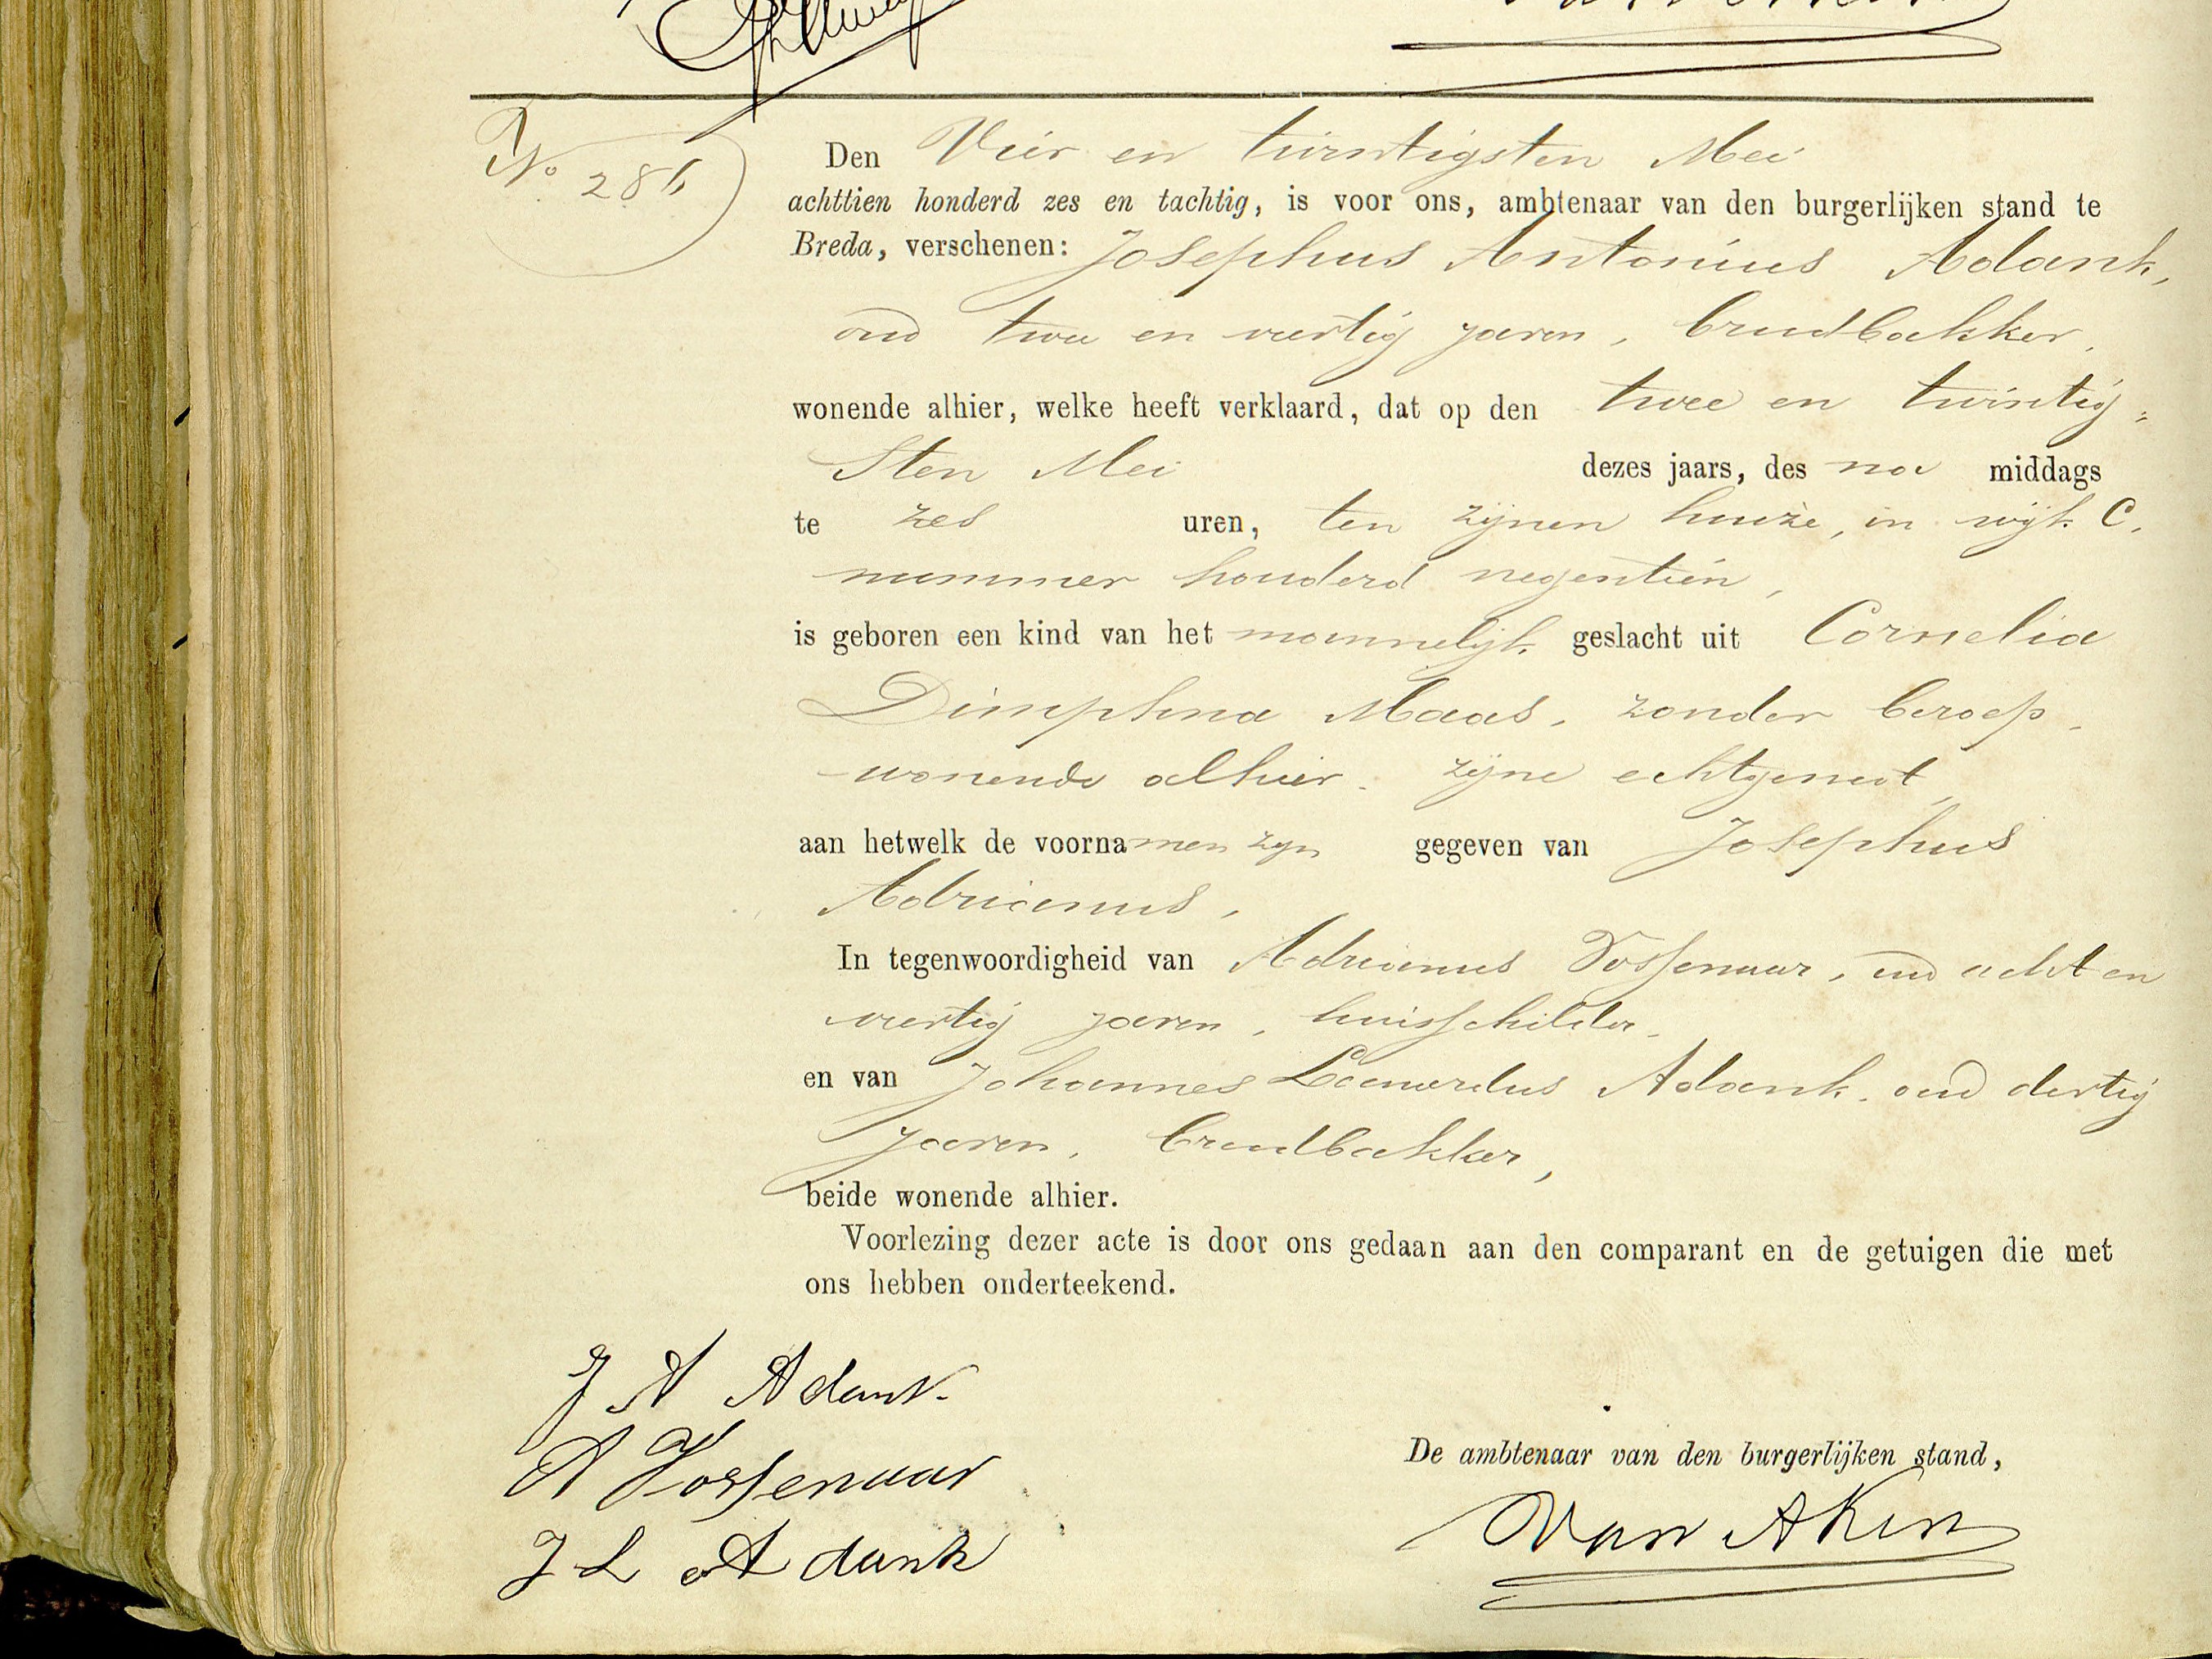 No 286
Den Vier en twintigsten Mei
achttien honderd zes en tachtig, is voor ons, ambtenaar van den burgerlijken stand te
Breda, verschenen: Josephus Antonius Adank,
oud twee en veertig jaren, broodbakker,
wonende alhier, welke heeft verklaard, dat op den twee en twintig=
sten Mei dezes jaars, des na middags
te zes uren, ten zijnen huize, in wijk C.
nummer honderd negentien,
is geboren een kind van het mannelijk geslacht uit Cornelia
Dimphna Maas, zonder beroep,
wonende alhier, zijne echtgenoot,
aan hetwelk de voornamen zijn gegeven van Josephus
Adrianus,
In tegenwoordigheid van Adrianus Vossenaar, oud acht en
veertig jaren, huisschilder,
en van Johannes Leonardus Adank, oud dertig
jaren, broodbakker,
beide wonende alhier.
Voorlezing dezer acte is door ons gedaan aan den comparant en de getuigen die met
ons hebben onderteekend.
J A Adank
A Vossenaar
De ambtenaar van den burgerlijken stand,
J L Adank
Van Aken